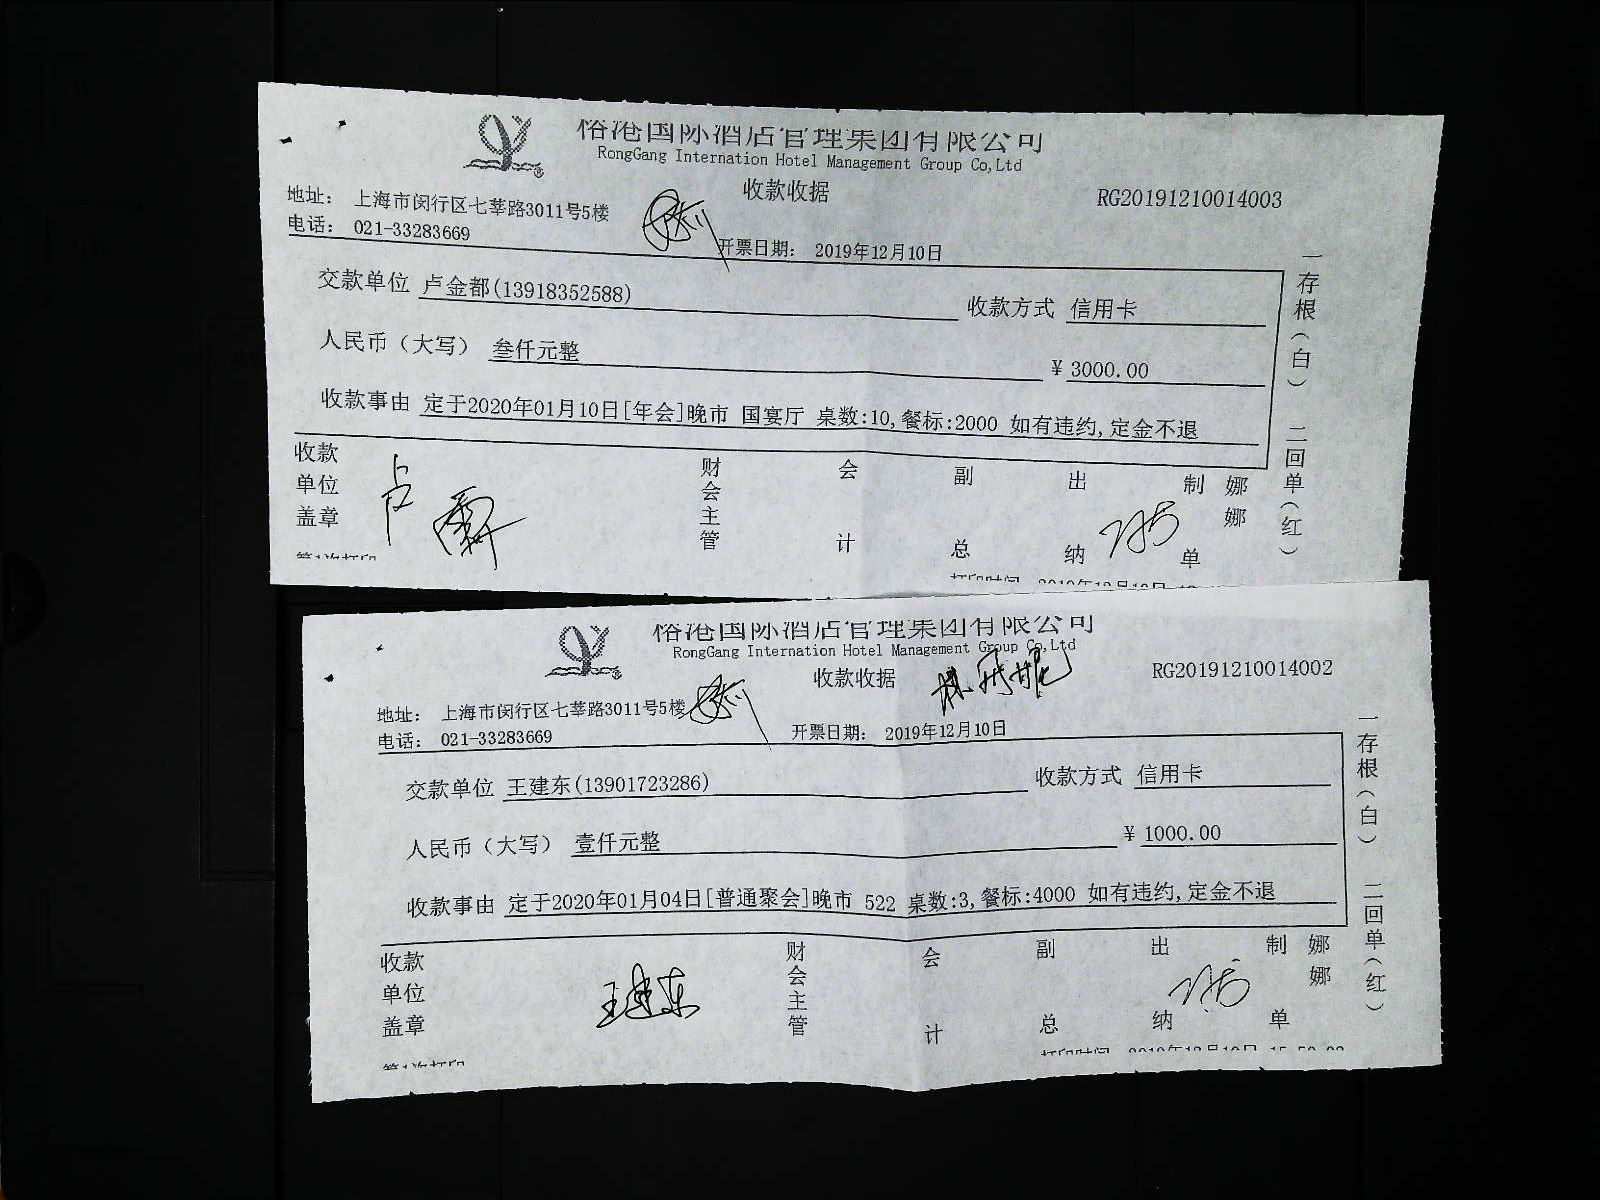 榕港国际酒店管理集团有限公司
RongGang Internation Hotel Management Group Co,Ltd
收款收据
RG20191210014003
地址: 上海市闵行区七莘路3011号5楼
电话: 021-33283669
开票日期: 2019年12月10日
交款单位 卢金都(13918352588) 收款方式 信用卡
人民币(大写) 叁仟元整 ¥ 3000.00
收款事由 定于2020年01月10日[年会]晚市 国宴厅 桌数:10,餐标:2000 如有违约,定金不退
收款单位盖章 财会主管 会计 副总 出纳 制单 娜娜
一存根(白) 二回单(红)
第1次打印
打印时间 2019年12月10日
榕港国际酒店管理集团有限公司
RongGang Internation Hotel Management Group Co,Ltd
收款收据
RG20191210014002
地址: 上海市闵行区七莘路3011号5楼
电话: 021-33283669
开票日期: 2019年12月10日
交款单位 王建东(13901723286) 收款方式 信用卡
人民币(大写) 壹仟元整 ¥ 1000.00
收款事由 定于2020年01月04日[普通聚会]晚市 522 桌数:3,餐标:4000 如有违约,定金不退
收款单位盖章 王建东 财会主管 会计 副总 出纳 制单 娜娜
一存根(白) 二回单(红)
第1次打印
打印时间 2019年12月10日